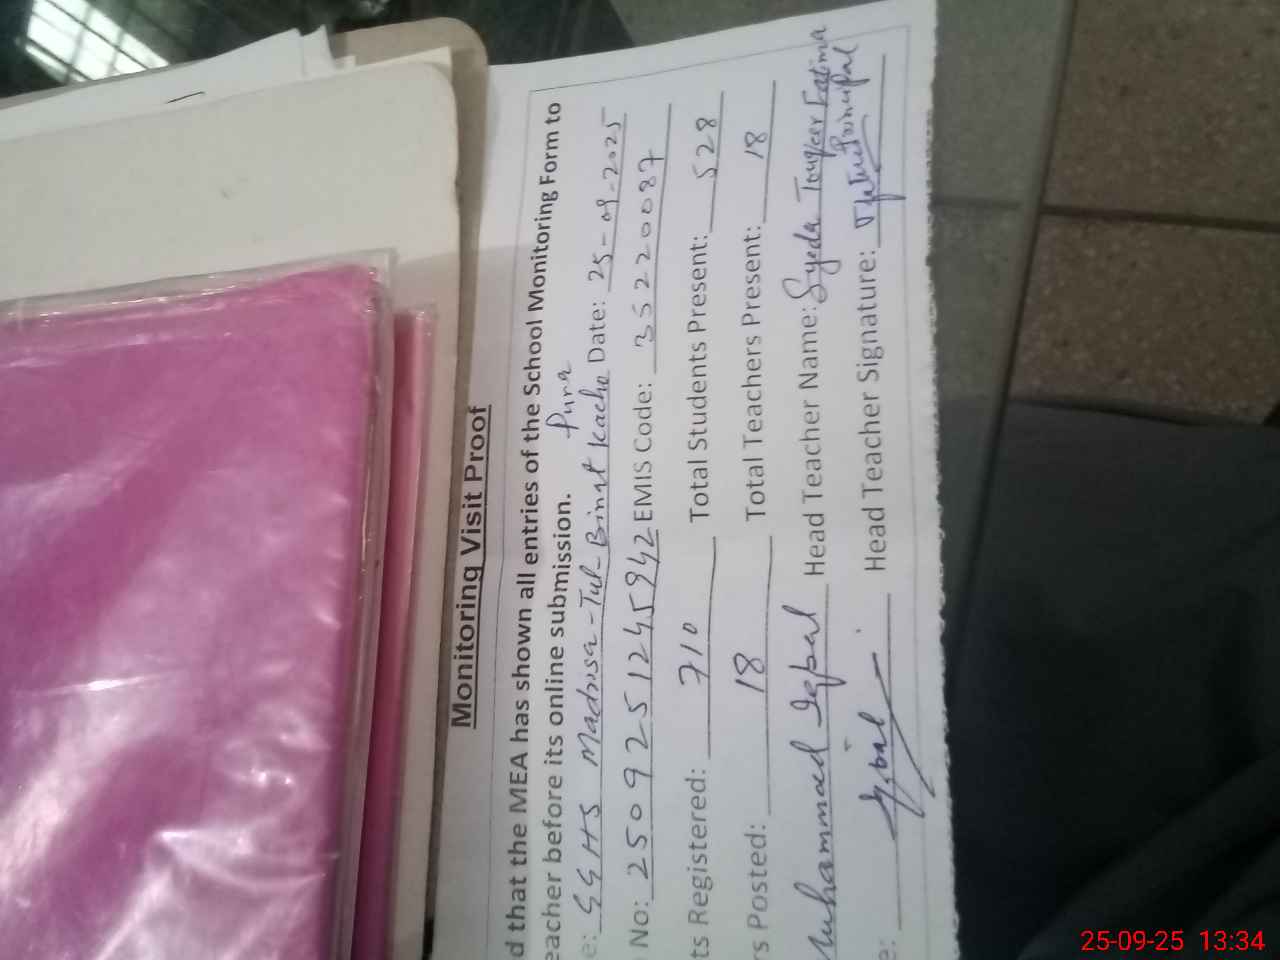 Monitoring Visit Proof
d that the MEA has shown all entries of the School Monitoring Form to
eacher before its online submission.
e: GGHS Madrisa-Tul-Binat Kacha Pura Date: 25-09-2025
No: 2509251245942 EMIS Code: 35220087
ts Registered: 710 Total Students Present: 528
rs Posted: 18 Total Teachers Present: 18
Muhammad Iqbal Head Teacher Name: Syeda Touqeer Fatima
e: Iqbal Head Teacher Signature: Principal
25-09-25 13:34